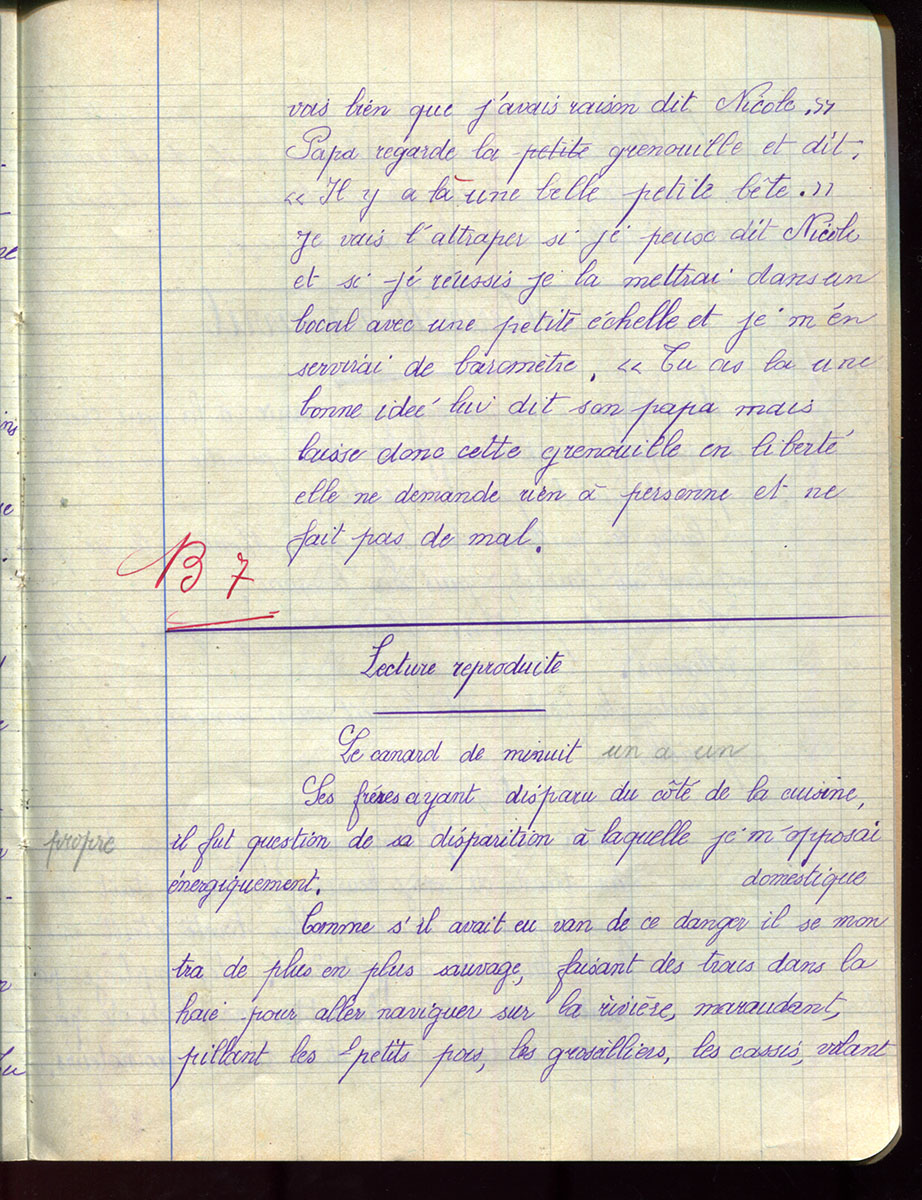 vois bien que j'avais raison dit Nicole. »
Papa regarde la petite grenouille et dit :
« Il y a là une belle petite bête. »
Je vais l'attraper si je peux dit Nicole
et si je réussis je la mettrai dans un
bocal avec une petite échelle et je m'en
servirai de baromètre. « Tu as la une
bonne ideé lui dit son papa mais
laisse donc cette grenouille en liberté
elle ne demande rien à personne et ne
fait pas de mal.
B 7
Lecture reproduite
Le canard de minuit un a un
Ses frères ayant disparu du côté de la cuisine,
propre il fut question de sa disparition à laquelle je m'opposai
énergiquement. domestique
Comme s'il avait eu van de ce danger il se mon
tra de plus en plus sauvage, faisant des trous dans la
haie pour aller naviguer sur la rivière, maraudant,
pillant les petits pois, les groseilliers, les cassis, volant